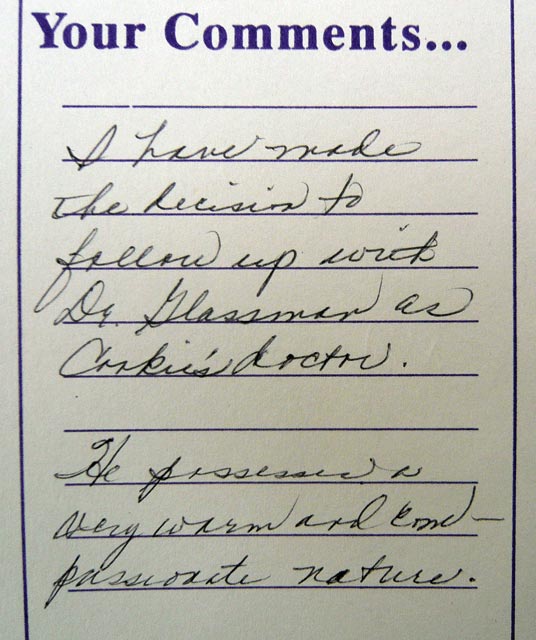 Your Comments...
I have made
the decision to
follow up with
Dr. Glassman as
Cookie's doctor.
He possesses a
very warm and com-
passionate nature.